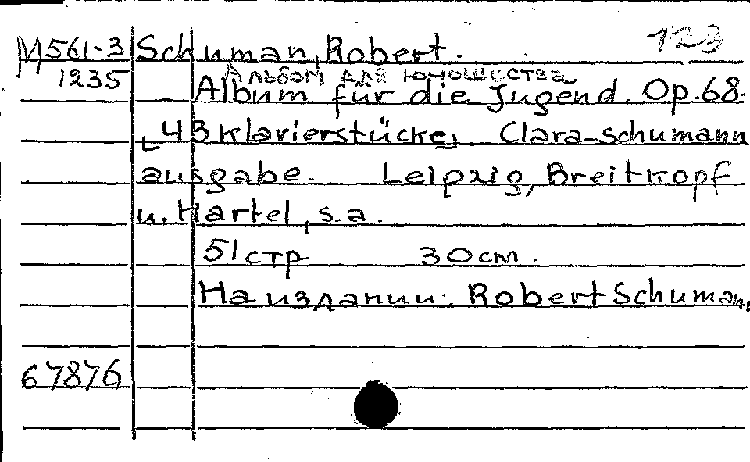 M561-3 Schuman, Robert. 123
1235 Альбом для юношества
Album für die Jugend. Op. 68.
43 Klavierstücke, Clara-Schumann
ausgabe. Leipzig, Breitkopf
u. Hartel, s.a.
51 стр 30 cm.
На издании: Robert Schuman,
67876